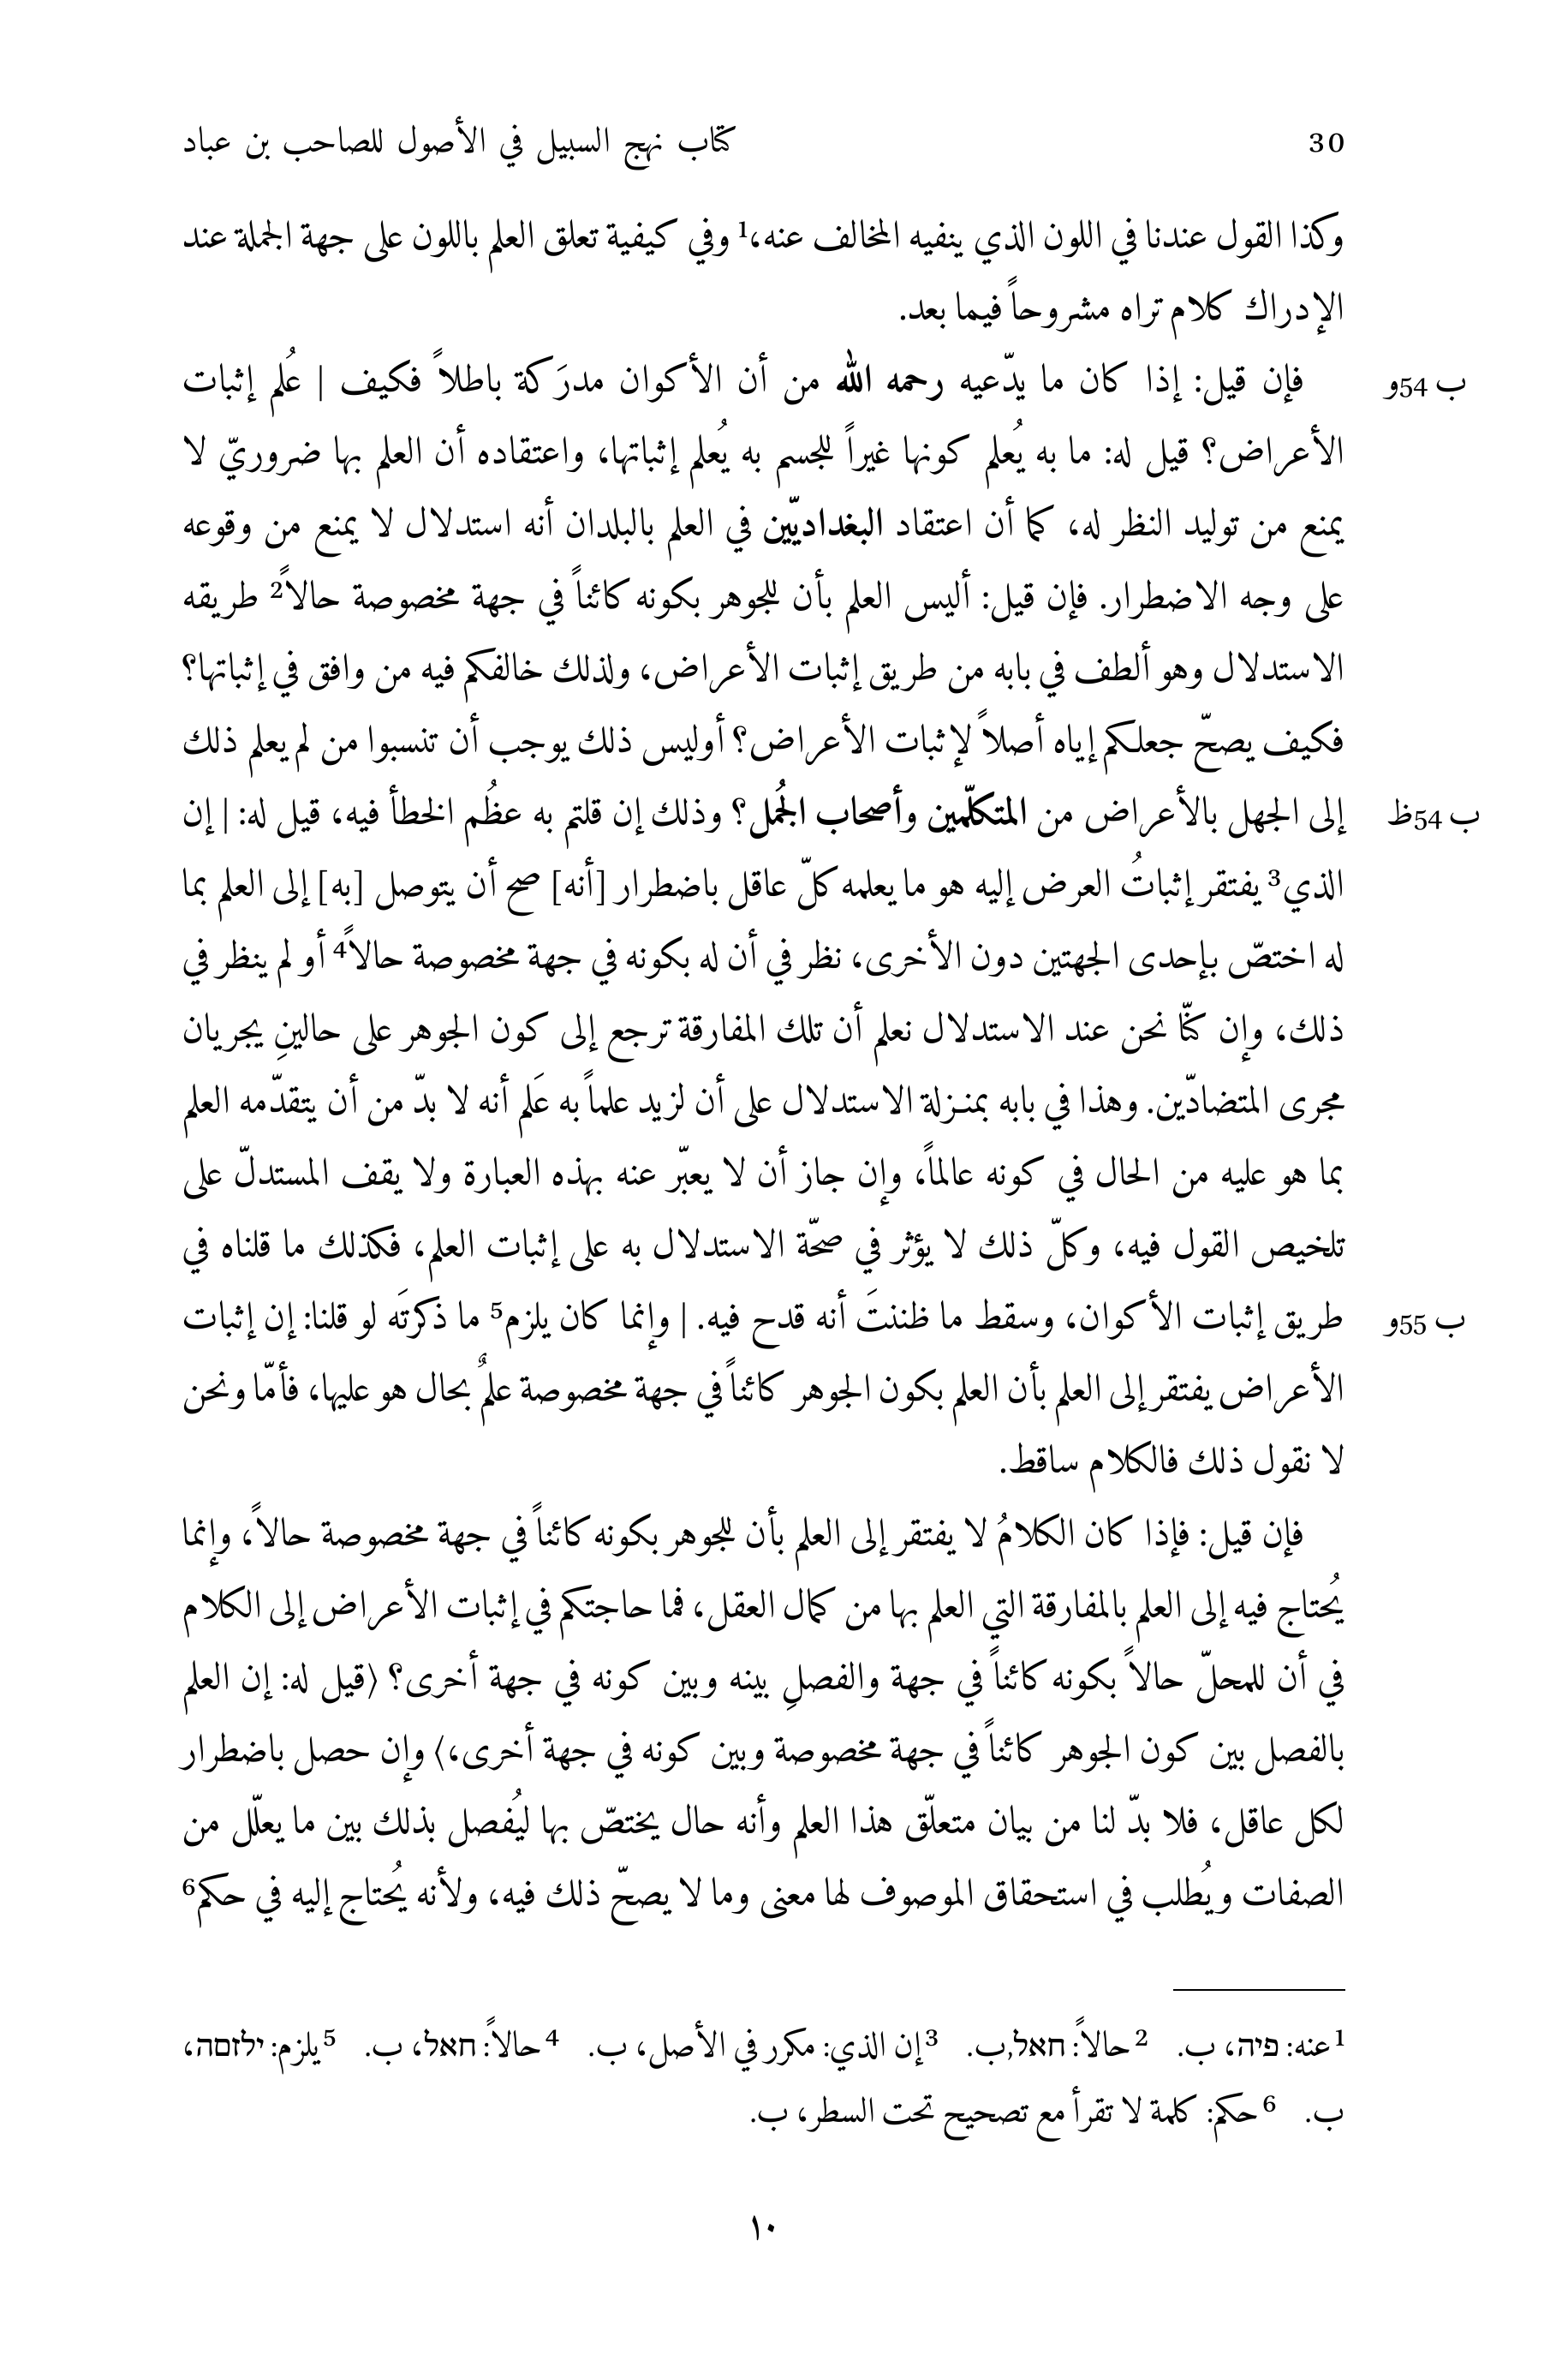 30 كتاب نهج السبيل في الأصول للصاحب بن عباد
وكذا القول عندنا في اللون الذي ينفيه المخالف عنه،¹ وفي كيفية تعلق العلم باللون على جهة الجملة عند
الإدراك كلام تراه مشروحاً فيما بعد.
ب 54و فإن قيل: إذا كان ما يدّعيه رحمه الله من أن الأكوان مدرَكة باطلاً فكيف | عُلم إثبات
الأعراض؟ قيل له: ما به يُعلم كونها غيراً للجسم به يُعلم إثباتها، واعتقاده أن العلم بها ضروريّ لا
يمنع من توليد النظر له، كما أن اعتقاد البغداديّين في العلم بالبلدان أنه استدلال لا يمنع من وقوعه
على وجه الاضطرار. فإن قيل: أليس العلم بأن للجوهر بكونه كائناً في جهة مخصوصة حالاً² طريقه
الاستدلال وهو ألطف في بابه من طريق إثبات الأعراض، ولذلك خالفكم فيه من وافق في إثباتها؟
فكيف يصحّ جعلكم إياه أصلاً لإثبات الأعراض؟ أوليس ذلك يوجب أن تنسبوا من لم يعلم ذلك
ب 54ظ إلى الجهل بالأعراض من المتكلّمين وأصحاب الجُمل؟ وذلك إن قلتم به عظُم الخطأ فيه، قيل له: | إن
الذي³ يفتقر إثباتُ العرض إليه هو ما يعلمه كلّ عاقل باضطرار [أنه] صح أن يتوصل [به] إلى العلم بما
له اختصّ بإحدى الجهتين دون الأخرى، نظر في أن له بكونه في جهة مخصوصة حالاً⁴ أو لم ينظر في
ذلك، وإن كنّا نحن عند الاستدلال نعلم أن تلك المفارقة ترجع إلى كون الجوهر على حالينِ يجريان
مجرى المتضادّين. وهذا في بابه بمنـزلة الاستدلال على أن لزيد علماً به عَلم أنه لا بدّ من أن يتقدّمه العلم
بما هو عليه من الحال في كونه عالماً، وإن جاز أن لا يعبّر عنه بهذه العبارة ولا يقف المستدلّ على
تلخيص القول فيه، وكلّ ذلك لا يؤثر في صحّة الاستدلال به على إثبات العلم، فكذلك ما قلناه في
ب 55و طريق إثبات الأكوان، وسقط ما ظننتَ أنه قدح فيه. | وإنما كان يلزم⁵ ما ذكرتَه لو قلنا: إن إثبات
الأعراض يفتقر إلى العلم بأن العلم بكون الجوهر كائناً في جهة مخصوصة علمٌ بحال هو عليها، فأمّا ونحن
لا نقول ذلك فالكلام ساقط.
فإن قيل: فإذا كان الكلامُ لا يفتقر إلى العلم بأن للجوهر بكونه كائناً في جهة مخصوصة حالاً، وإنما
يُحتاج فيه إلى العلم بالمفارقة التي العلم بها من كمال العقل، فما حاجتكم في إثبات الأعراض إلى الكلام
في أن للمحلّ حالاً بكونه كائناً في جهة والفصلِ بينه وبين كونه في جهة أخرى؟ ⟨قيل له: إن العلم
بالفصل بين كون الجوهر كائناً في جهة مخصوصة وبين كونه في جهة أخرى،⟩ وإن حصل باضطرار
لكل عاقل، فلا بدّ لنا من بيان متعلّق هذا العلم وأنه حال يختصّ بها ليُفصل بذلك بين ما يعلّل من
الصفات ويُطلب في استحقاق الموصوف لها معنى وما لا يصحّ ذلك فيه، ولأنه يُحتاج إليه في حكم⁶
¹ عنه: פיה، ب. ² حالاً: חאל,ب. ³ إن الذي: مكرر في الأصل، ب. ⁴ حالاً: חאל، ب. ⁵ يلزم: ילזמה،
ب. ⁶ حكم: كلمة لا تقرأ مع تصحيح تحت السطر، ب.
١٠